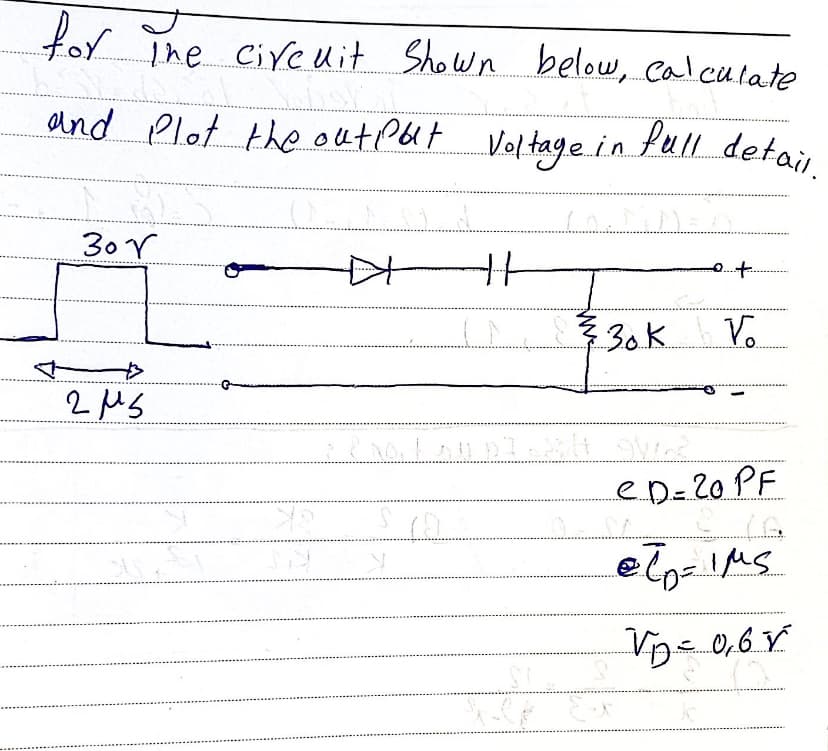 for The circuit Shown below, calculate
and Plot the output Voltage in full detail.
30V
+
30K Vo
2 μs
-
CD=20 PF
τD=1μs
VD=0,6V